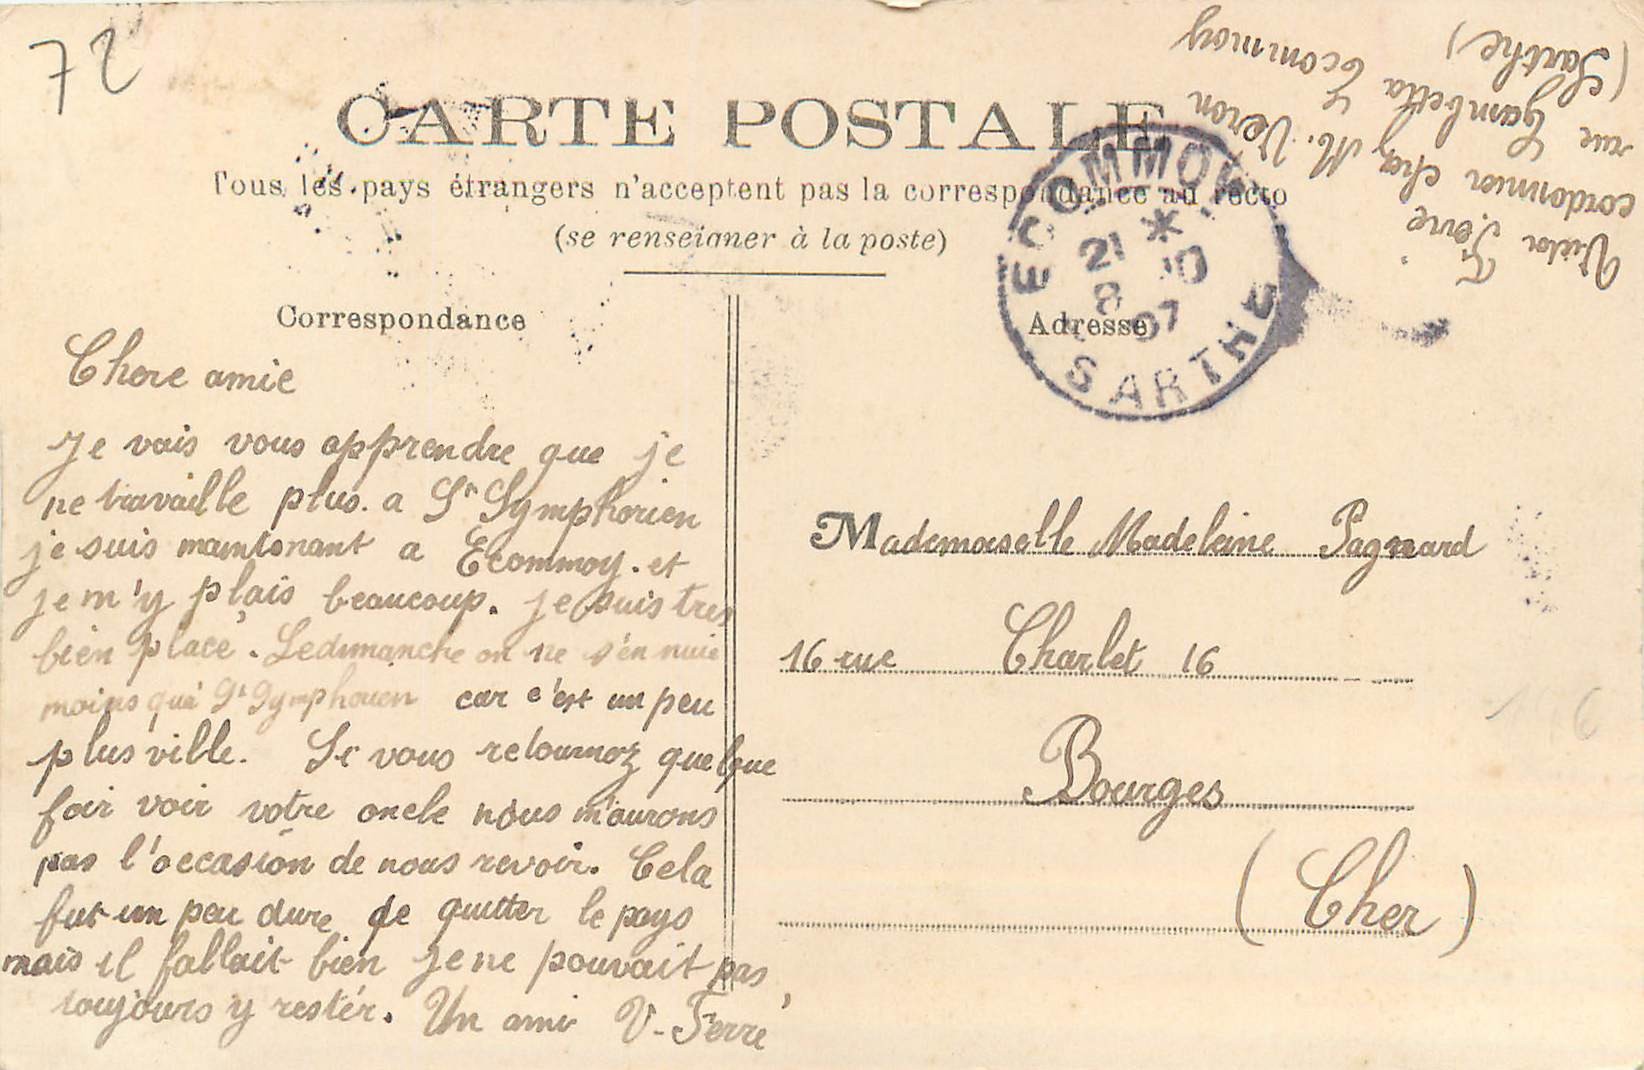 72
CARTE POSTALE
Tous les pays étrangers n'acceptent pas la correspondance au recto
(se renseigner à la poste)
Correspondance
Chere amie
Je vais vous apprendre que je
ne travaille plus. a St Symphorien
je suis maintenant a Ecommoy. et
je m'y plais beaucoup. je suis tres
bien place. Le dimanche on ne s'en nuie
moins qua St Symphorien car c'est un peu
plus ville. Si vous retournez quelque
foir voir votre oncle nous n'aurons
pas l'occasion de nous revoir. Cela
fut un peu dure de quitter le pays
mais il fallait bien je ne pouvait pas
toujours y restér. Un ami V-Ferré
Adresse
Mademoiselle Madeleine Pagnard
16 rue Charlet 16
Bourges
(Cher)
ECOMMOY
21 * 10
8 07
SARTHE
Victor Ferré
cordonnier chez M. Veron
rue Gambetta Ecommoy
(Sarthe)